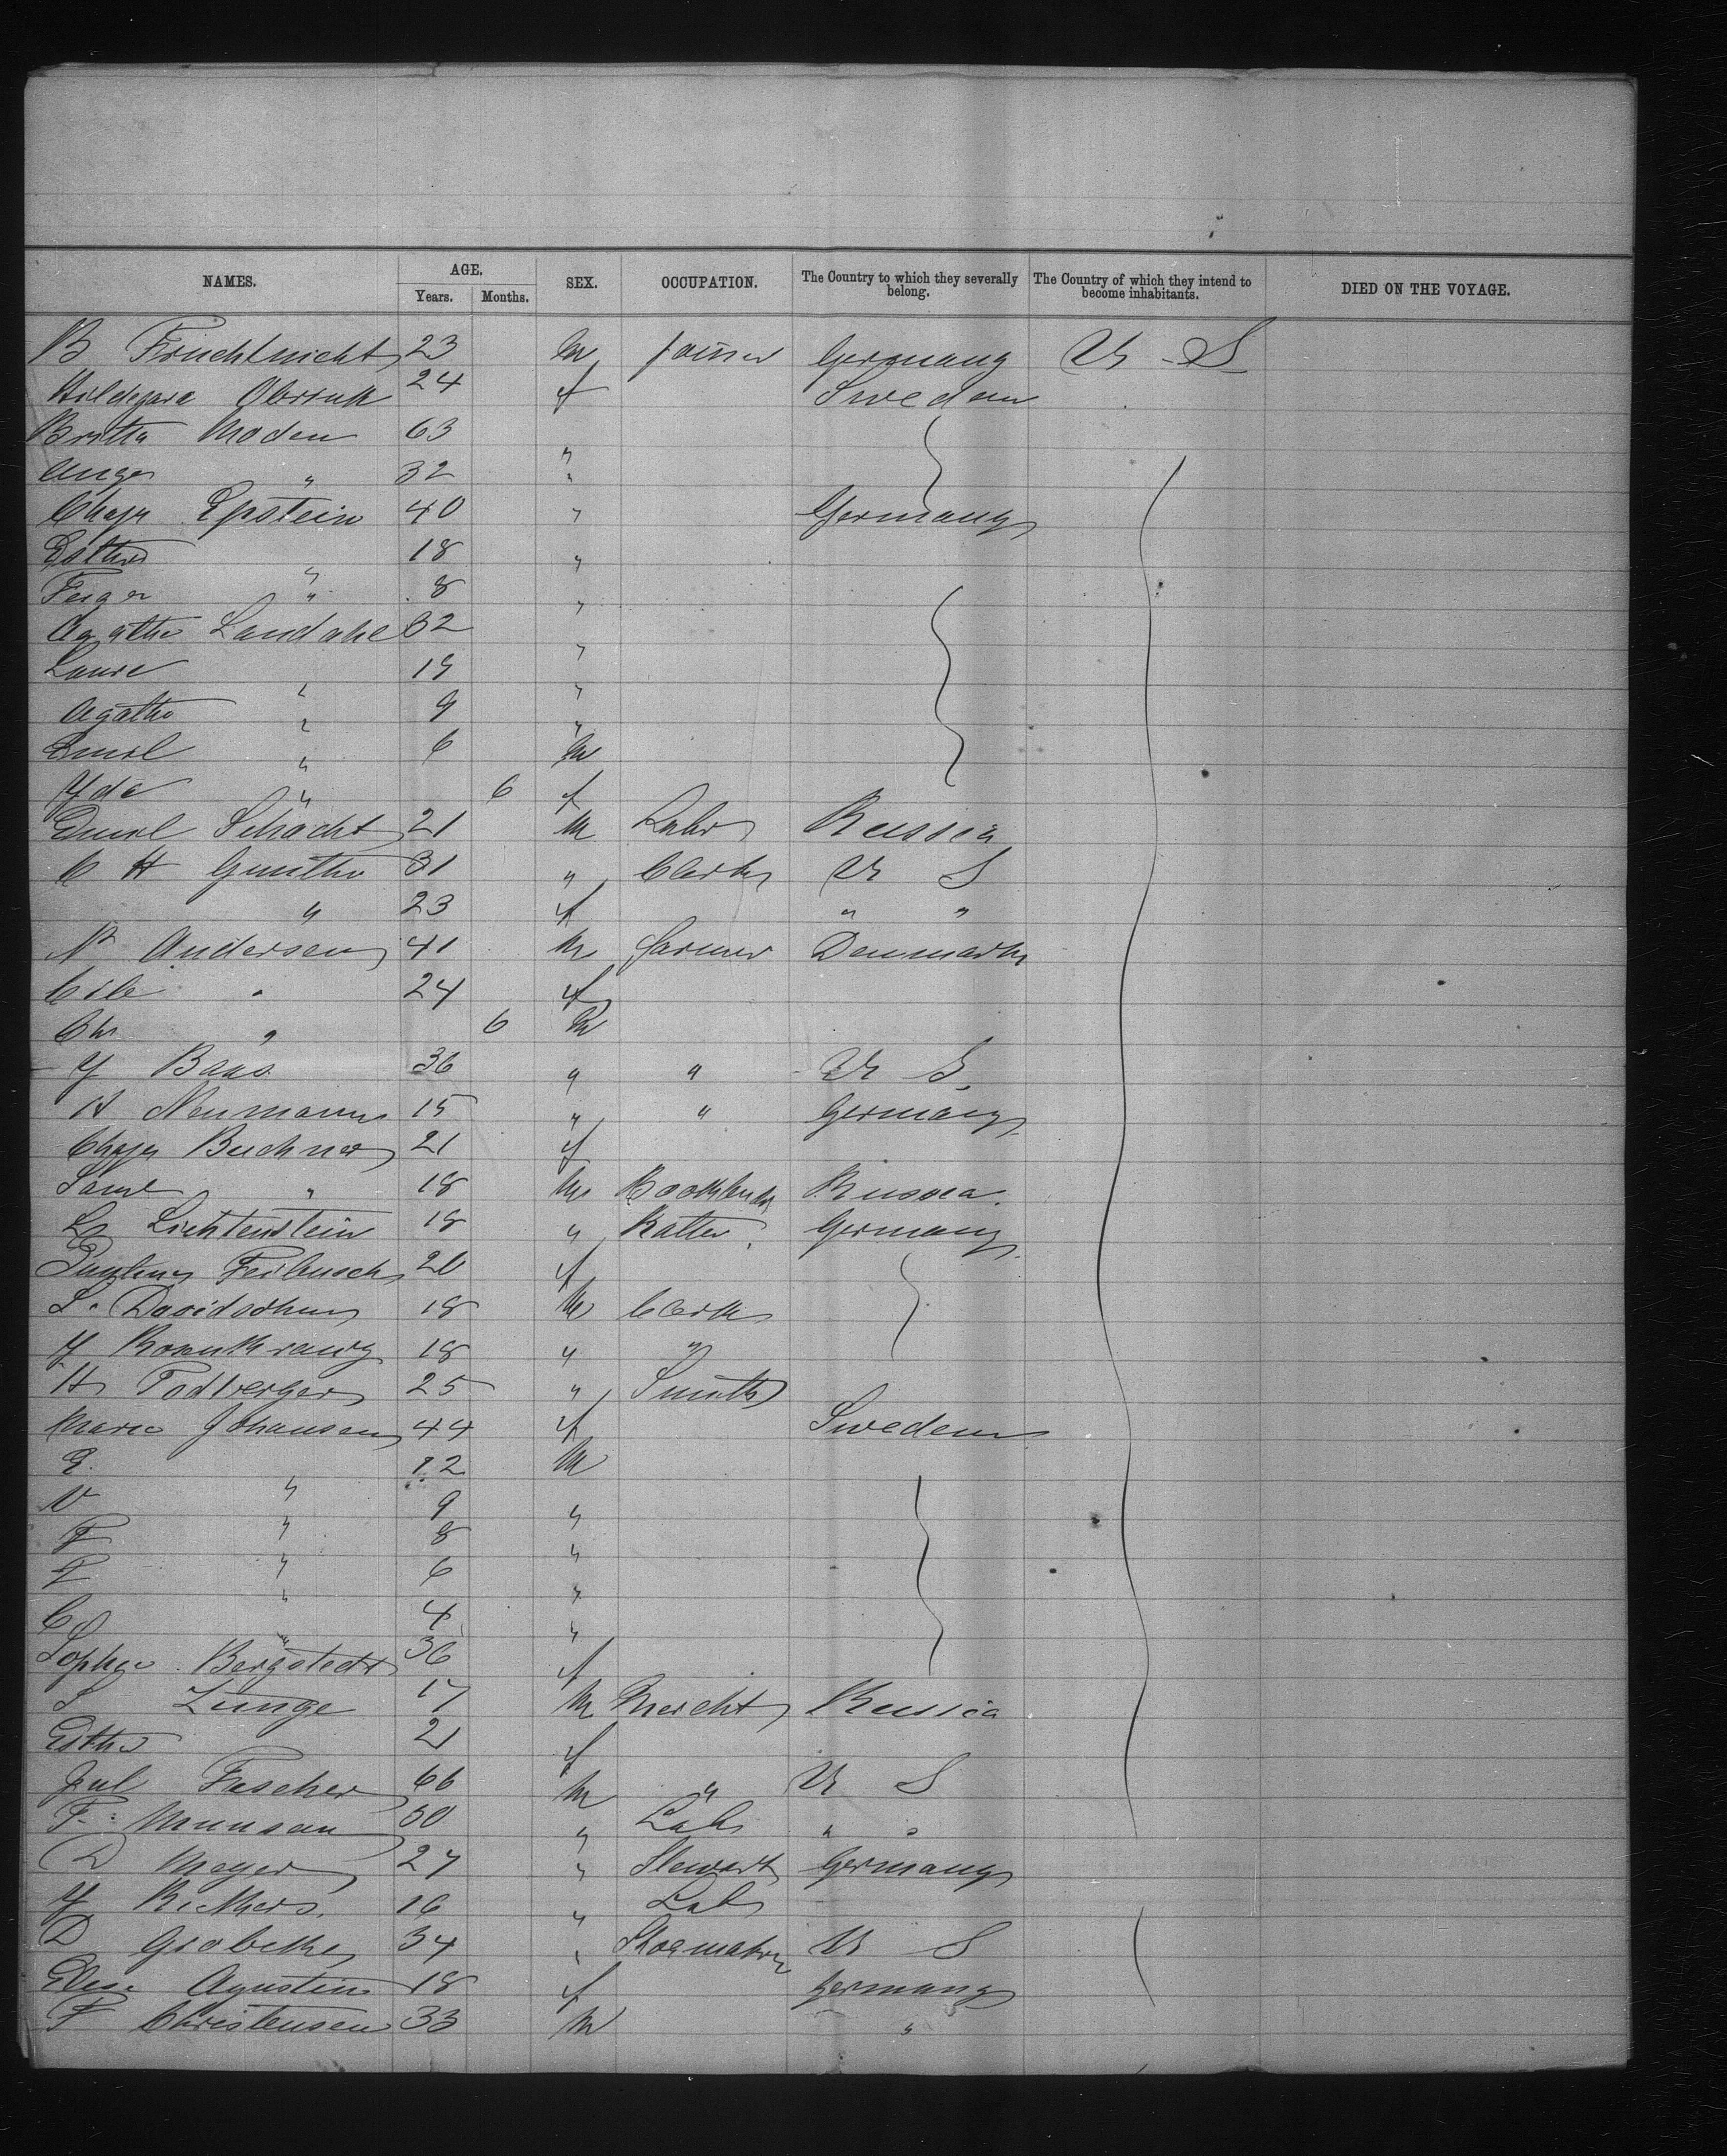 NAMES. AGE. SEX. OCCUPATION. The Country to which they severally belong. The Country of which they intend to become inhabitants. DIED ON THE VOYAGE.
Years. Months.
B Fruchtnicht 23 m joiner Germany U S
Hildegard 24 f Sweden
Britta Moden 63 "
Inger " 32 "
Chaja Epstein 40 " Germany
Esther " 18 "
Feiger " 8 "
Agathe Landahl 32 "
Laura " 19 "
Agathe " 9 "
Emil " 6 m
Yda " 6 f
Emil Schacht 21 m Labr Russia
C H Gunther 31 " Clerk U S
" 23 f " "
N Andersen 41 m farmer Denmark
Cile " 24 f
Chr " 6 m
Y Baas 36 " " U S.
H Neumann 15 " " Germany
Chaja Buchner 21 f
Saml " 18 m Bookbindr Russia.
Lichtenstein 18 " Germany
Feibusch 20 f
S. Davidsohn 18 m Clerk
Y Rosenkranz 18 " "
H Todberger 25 " Smith
Maria Johansen 44 f Sweden
E. " 12 m
V " 9 "
F " 8 "
F " 6 "
C " 4 "
Sophie Bergstedt 36 f
S Zunge 17 m Knecht Russia
Esther 21 f
Jul Fischer 66 m " U S
F. Munson 30 " Lab " "
D Meyer 27 " Stewart Germany
Y Rickers. 16 " Lab
D Grobecke 34 " Shoemaker U S
Elise Agustin 18 f Germany
F Christensen 33 m "